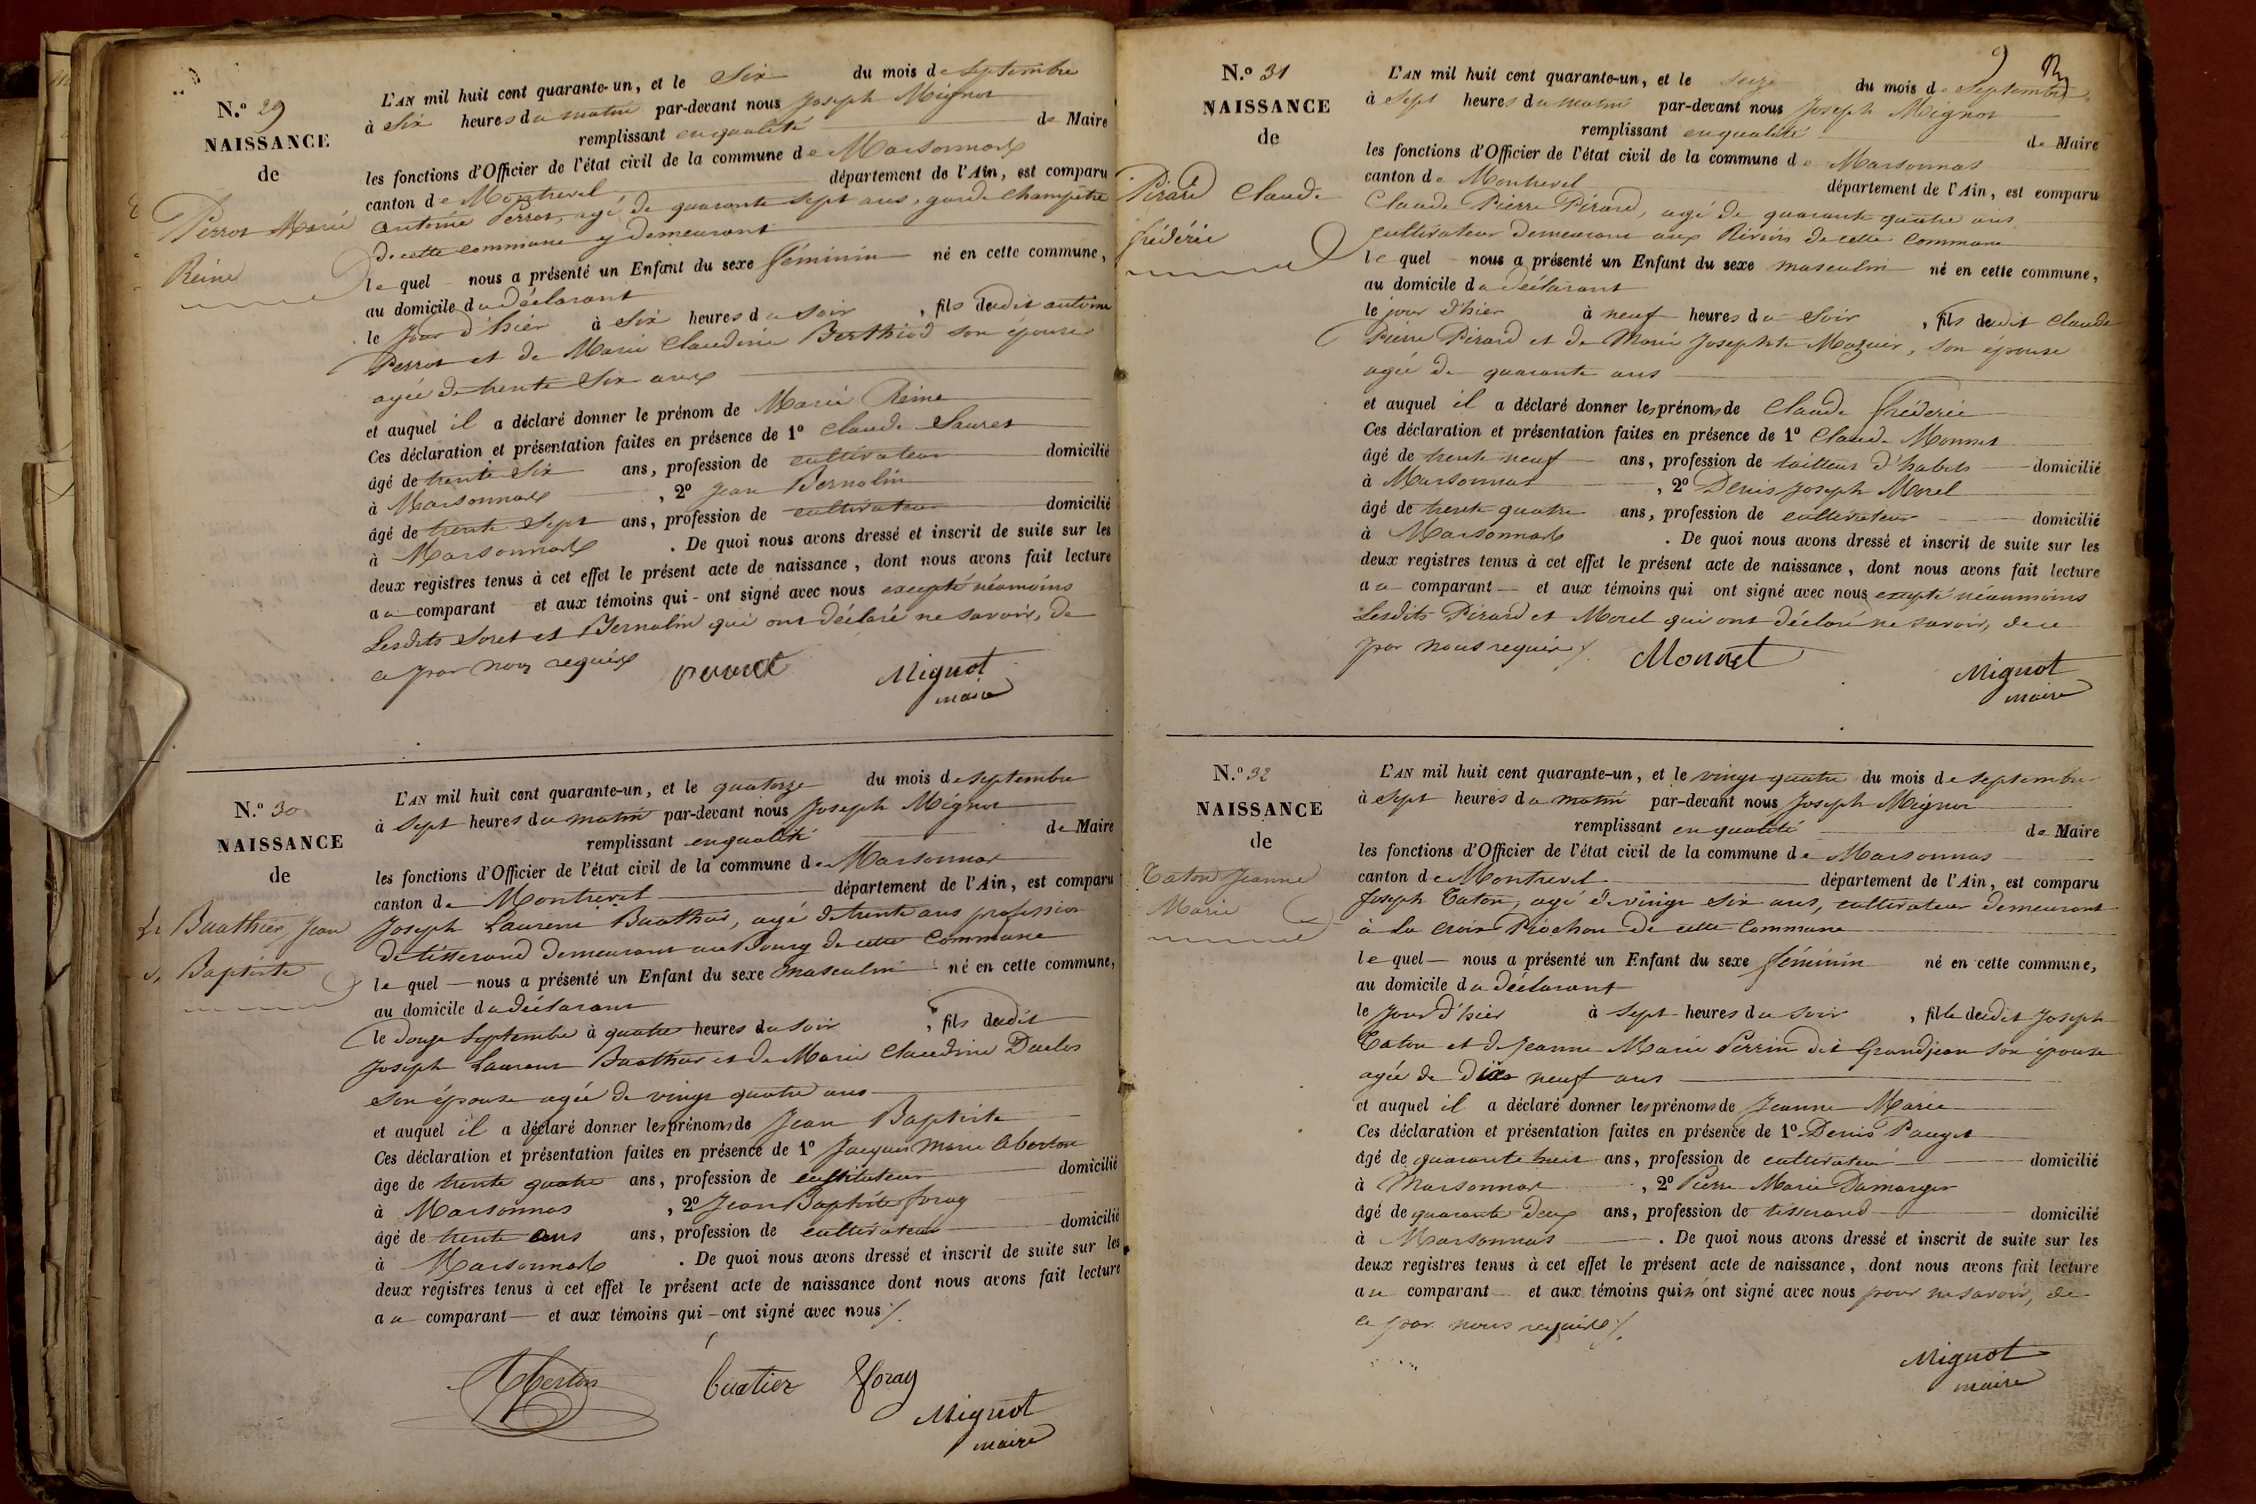 N.o 29
NAISSANCE
de
Perrot Marie
Reine
L'AN mil huit cent quarante-un, et le Six du mois de septembre
à six heures du matin par-devant nous Joseph Mignot
remplissant en qualité de Maire
les fonctions d'Officier de l'état civil de la commune de Marsonnas
canton de Montrevel département de l'Ain, est comparu
antoine Perrot, agé de quarante sept ans, garde champêtre
de cette commune y demeurant
le quel nous a présenté un Enfant du sexe féminin né en cette commune,
au domicile du déclarant
le Jour d'hier à six heures du soir, fils dudit antoine
Perrot et de Marie Claudine Berthiod son épouse
agée de trente six ans
et auquel il a déclaré donner le prénom de Marie Reine
Ces déclaration et présentation faites en présence de 1o Claude Sauret
âgé de trente six ans, profession de cultivateur domicilié
à Marsonnas, 2o Jean Bernalin
âgé de trente sept ans, profession de cultivateur domicilié
à Marsonnas. De quoi nous avons dressé et inscrit de suite sur les
deux registres tenus à cet effet le présent acte de naissance, dont nous avons fait lecture
au comparant et aux témoins qui ont signé avec nous excepté néamoins
Lesdits Soret et Bernalin qui ont déclaré ne savoir, de
ce par nous requis
perrot Mignot
maire
N.o 30
NAISSANCE
de
Buathier Jean
Baptiste
L'AN mil huit cent quarante-un, et le quatorze du mois de septembre
à sept heures du matin par-devant nous Joseph Mignot
remplissant en qualité de Maire
les fonctions d'Officier de l'état civil de la commune de Marsonnas
canton de Montrevel département de l'Ain, est comparu
Joseph Laurent Buathier, agé de trente ans profession
de tisserand demeurant au Bourg de cette Commune
le quel nous a présenté un Enfant du sexe masculin né en cette commune,
au domicile du déclarant
le douze Septembre à quatre heures du soir, fils dudit
Joseph Laurent Buathier et de Marie Claudine Duclos
son épouse agée de vingt quatre ans
et auquel il a déclaré donner les prénoms de Jean Baptiste
Ces déclaration et présentation faites en présence de 1o Jacques Marie Aberton
âge de trente quatre ans, profession de instituteur domicilié
à Marsonnas, 2o Jean Baptiste foray
âgé de trente ans ans, profession de cultivateur domicilié
à Marsonnas. De quoi nous avons dressé et inscrit de suite sur les
deux registres tenus à cet effet le présent acte de naissance dont nous avons fait lecture
au comparant et aux témoins qui ont signé avec nous
Aberton buatier foray
Mignot
maire
N.o 31
NAISSANCE
de
Pirard Claude
fréderic
L'AN mil huit cent quarante-un, et le seize du mois de Septembre
à sept heures du matin par-devant nous Joseph Mignot
remplissant en qualité de Maire
les fonctions d'Officier de l'état civil de la commune de Marsonnas
canton de Montrevel département de l'Ain, est comparu
Claude Pierre Pirard, agé de quarante quatre ans
cultivateur demeurant aux de cette Commune
le quel nous a présenté un Enfant du sexe masculin né en cette commune,
au domicile du déclarant
le jour d'hier à neuf heures du Soir, fils dudit Claude
Pierre Pirard et de Marie Josephte Mazuir, son épouse
agée de quarante ans
et auquel il a déclaré donner les prénoms de Claude fréderic
Ces déclaration et présentation faites en présence de 1o Claude Monnet
âgé de trente neuf ans, profession de tailleur d'habits domicilié
à Marsonnas, 2o Denis Joseph Morel
âgé de trente quatre ans, profession de cultivateur domicilié
à Marsonnas. De quoi nous avons dressé et inscrit de suite sur les
deux registres tenus à cet effet le présent acte de naissance, dont nous avons fait lecture
au comparant et aux témoins qui ont signé avec nous excepté néanmoins
Lesdits Pirard et Morel qui ont déclaré ne savoir, de ce
par nous requis
Monnet Mignot
maire
N.o 32
NAISSANCE
de
Caton Jeanne
Marie
L'AN mil huit cent quarante-un, et le vingt quatre du mois de septembre
à sept heures du matin par-devant nous Joseph Mignot
remplissant en qualité de Maire
les fonctions d'Officier de l'état civil de la commune de Marsonnas
canton de Montrevel département de l'Ain, est comparu
Joseph Caton, agé de vingt six ans, cultivateur demeurant
à la croix Piochon de cette Commune
le quel nous a présenté un Enfant du sexe féminin né en cette commune,
au domicile du déclarant
le jour d'hier à sept heures du soir, fille dudit Joseph
Caton et de Jeanne Marie Perrin dit Grandjean son épouse
agée de dix neuf ans
et auquel il a déclaré donner les prénoms de Jeanne Marie
Ces déclaration et présentation faites en présence de 1o Denis Pauget
âgé de quarante huit ans, profession de cultivateur domicilié
à Marsonnas, 2o Pierre Marie Damarger
âgé de quarante deux ans, profession de tisserand domicilié
à Marsonnas. De quoi nous avons dressé et inscrit de suite sur les
deux registres tenus à cet effet le présent acte de naissance, dont nous avons fait lecture
au comparant et aux témoins qui n'ont signé avec nous pour ne savoir, de
ce par nous requis
Mignot
maire